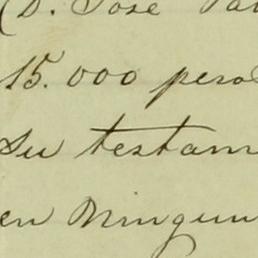 (D. José Pa
15.000 peso
su testam
en Ningun